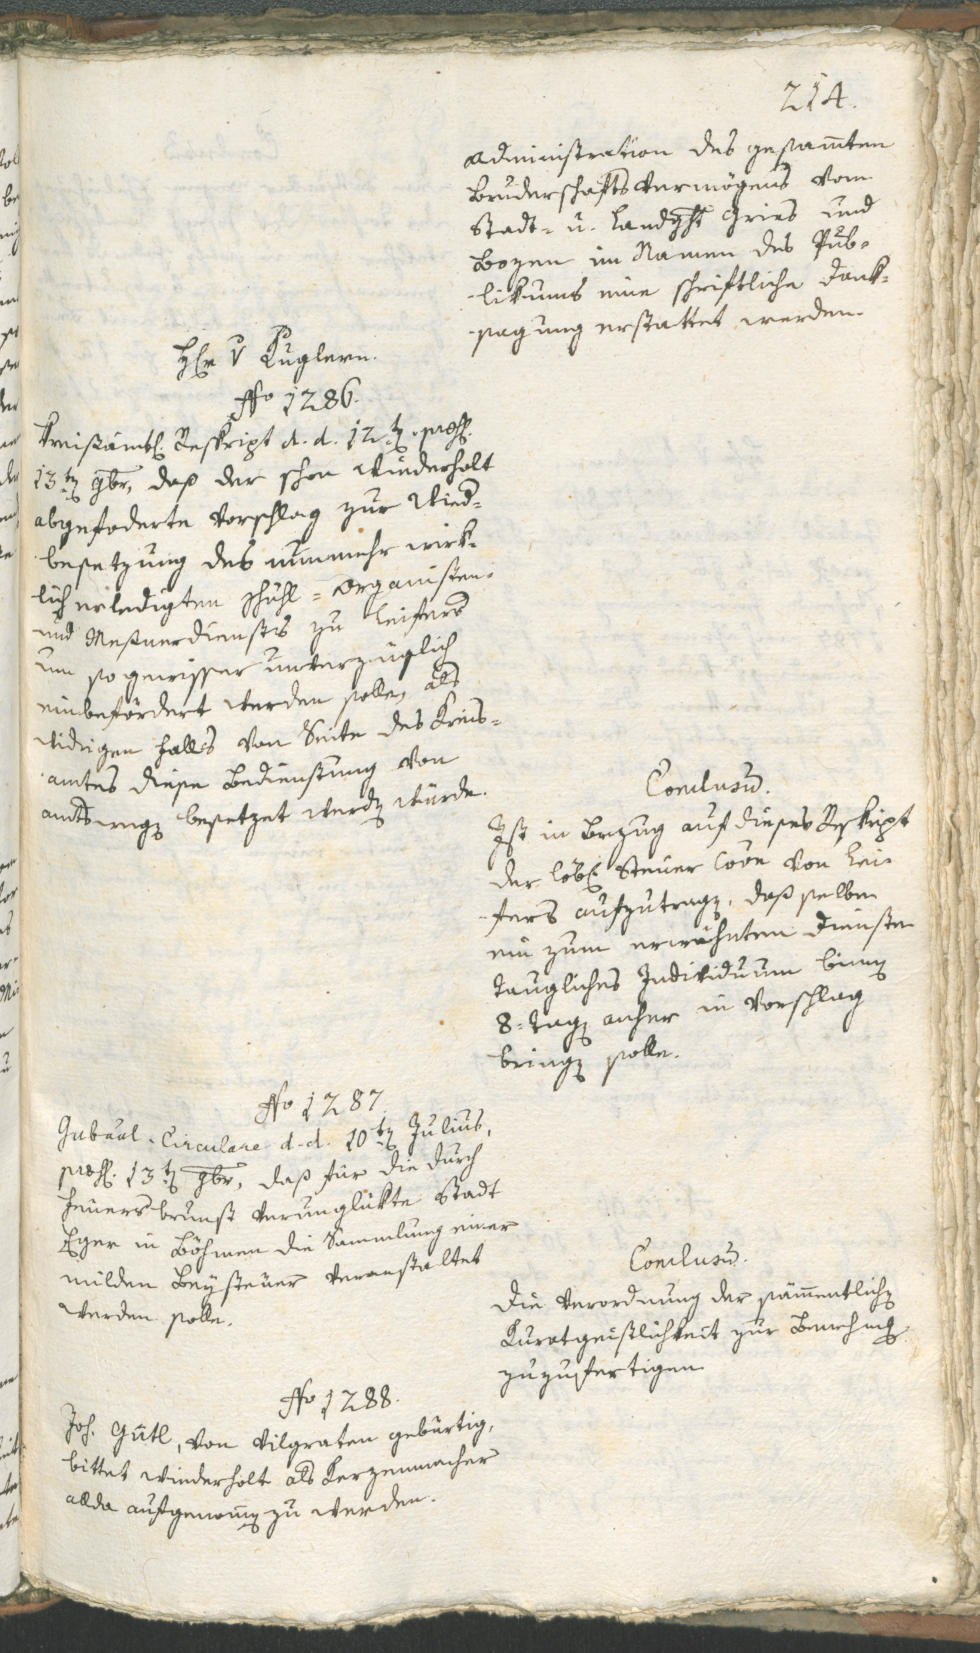 214.
Administration des gesam̄ten
Bruderschafts Vermögens vom
Stadt- u. Landght Gries und
Bozen im Namen des Pub-
likums eine schriftliche Dank-
sagung erstattet werden.
H. v Kuglern.
No 1286.
Kreisämtl. Reskript d. d. 12t. præs.
13t. 9br, daß der schon wiederholt
abgefoderte Vorschlag zur Wied-
besetzung des nunmehr wirk-
lich erledigten Schull-Organisten-
und Meßnerdiensts zu Leifers
um so gewisser unverzüglich
einbefördert werden solle, als
widrigen Falls von Seite des Kreis-
amtes diese Bedienstung von
amtswegen besetzet werden würde.
Conclusū.
Ist in Bezug auf dieses Reskript
der löbl. Steuer Coōn von Lei-
fers aufzutragen, daß selbe
ein zum erwähnten Dienste
taugliches Individuum binnen
8-Tagen anher in Vorschlag
bringen solle.
No 1287
Gubnal-Circulare d. d. 10t. Julius,
præs. 13t. 9br, daß für die durch
Feuersbrunst verunglükte Stadt
Eger in Böhmen die Sammlung einer
milden Beysteuer veranstaltet
werden solle.
Conclusū.
Die Verordnung der säm̄entlichen
Kuratgeistlichkeit zur
zuzufertigen
No 1288.
Joh. Gütl, von Vilgraten gebürtig,
bittet wiederholt als Kerzenmacher
allda aufgenom̄en zu werden.